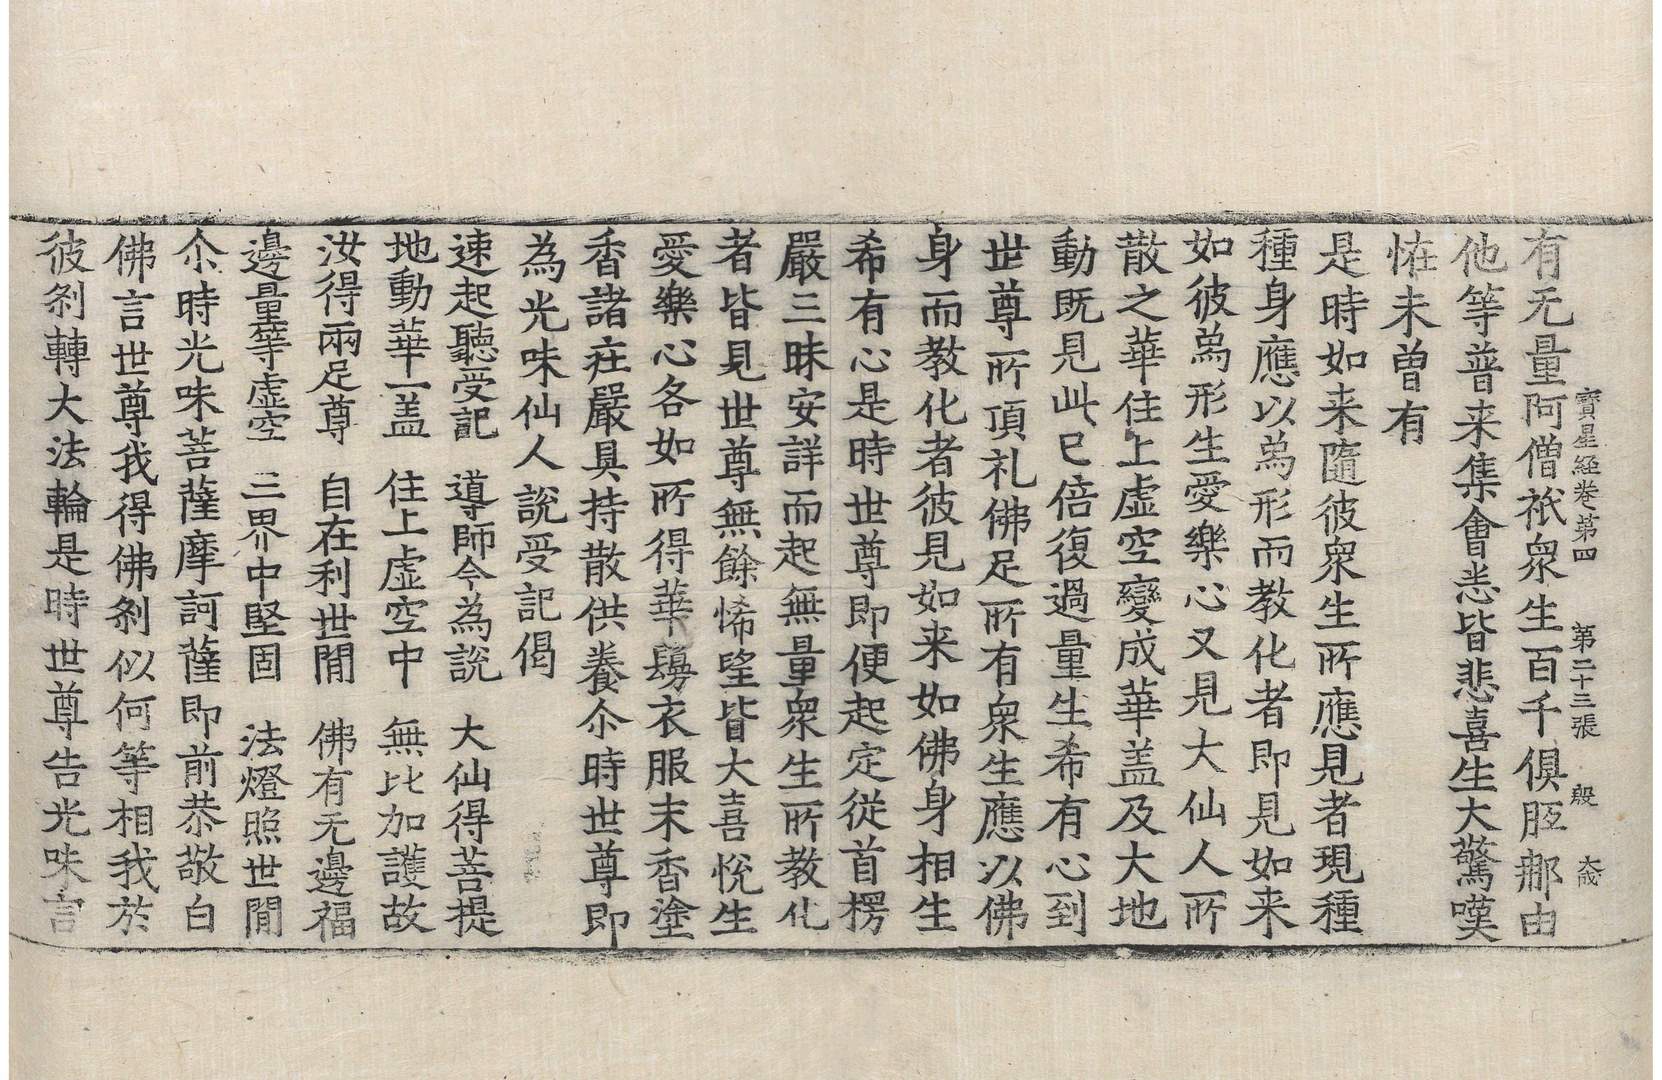 寶星経卷第四　第二十三張　殷　大成
有无量阿僧祇衆生百千俱胝那由
他等普来集會悉皆悲喜生大驚嘆
恠未曽有
是時如来隨彼衆生所應見者現種
種身應以為形而教化者即見如来
如彼為形生愛樂心又見大仙人所
散之華住上虛空變成華盖及大地
動既見此已倍復過量生希有心到
世尊所頂礼佛足所有衆生應以佛
身而教化者彼見如来如佛身相生
希有心是時世尊即便起定從首楞
嚴三昧安詳而起無量衆生所教化
者皆見世尊無餘悕望皆大喜悅生
愛樂心各如所得華鬘衣服末香塗
香諸莊嚴具持散供養尒時世尊即
為光味仙人說受記偈
速起聽受記　導師令為說　大仙得菩提
地動華一盖　住上虛空中　無比加護故
汝得兩足尊　自在利世間　佛有无邊福
邊量等虛空　三界中堅固　法燈照世間
尒時光味菩薩摩訶薩即前恭敬白
佛言世尊我得佛剎似何等相我於
彼剎轉大法輪是時世尊告光味言